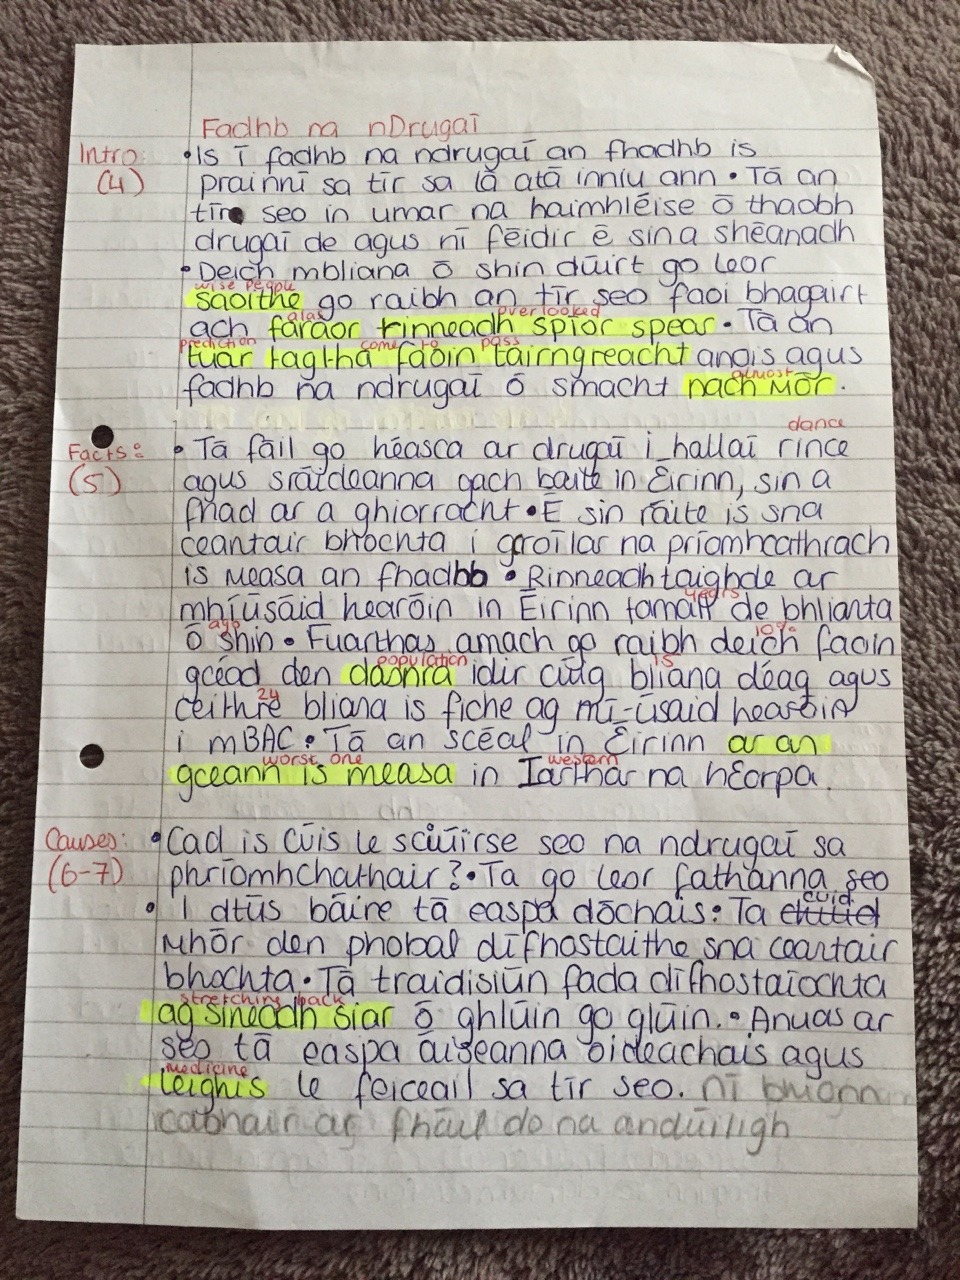 Fadhb na nDrugaí
Intro:
(4)
•Is í fadhb na ndrugaí an fhadhb is
prainní sa tír sa lá atá inniu ann • Tá an
tír seo in umar na haimhléise ó thaobh
drugaí de agus ní féidir é sin a shéanadh
• Deich mbliana ó shin dúirt go leor
wise people
saoithe go raibh an tír seo faoi bhagairt
alas overlooked
ach faraor rinneadh spior spear • Tá an
prediction come to pass
tuar tagtha faoin tairngreacht anois agus
almost
fadhb na ndrugaí ó smacht nach mór.
Facts:
(5)
dance
• Tá fáil go héasca ar drugaí i hallaí rince
agus sráideanna gach baite in Éirinn, sin a
fhad ar a ghiorracht • É sin ráite is sna
ceantair bhochta i gcroílár na príomhcathrach
is measa an fhadhb • Rinneadh taighde ar
years
mhíúsáid hearóin in Éirinn tamall de bhlianta
ago 10%
ó shin • Fuarthas amach go raibh deich faoin
population 15
gcéad den daonra idir cúig bliana déag agus
24
ceithre bliana is fiche ag mí-úsáid hearóin
i mBÁC • Tá an scéal in Éirinn ar an
worst one western
gceann is measa in Iarthar na hEorpa.
Causes:
(6-7)
• Cad is cúis le sciúirse seo na ndrugaí sa
phríomhchathair? • Ta go leor fáthanna seo
cuid
• I dtús báire tá easpa dóchais • Ta
mhór den phobal dífhostaithe sna ceantair
bhochta • Tá traidisiún fada dífhostaíochta
stretching back
ag síneadh siar ó ghlúin go glúin. • Anuas ar
seo tá easpa áiseanna oideachais agus
medicine
leighis le feiceáil sa tír seo. ní bhíonn
cabhair ar fháil do na andúiligh